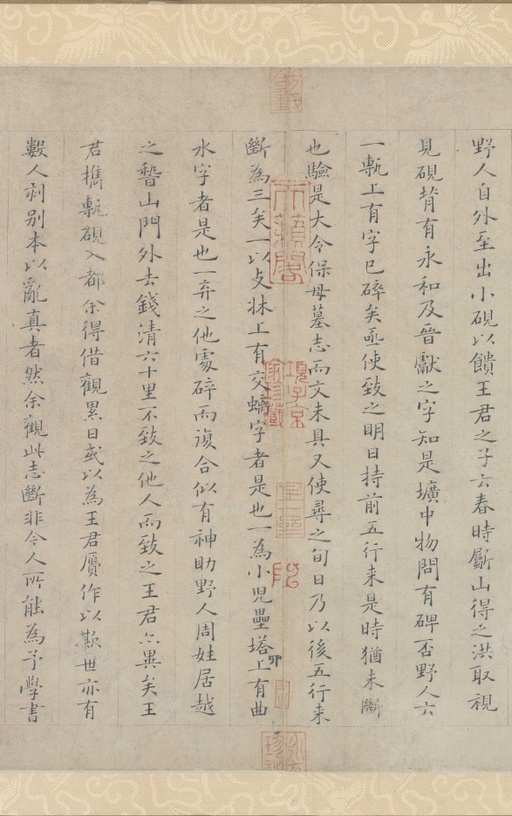 野人自外至出小硯以饋王君之子六春時斸山得之洪取視
見硯背有永和及晉獻之字知是壙中物問有碑否野人云
一甎上有字已碎矣亟使致之明日持前五行来是時猶未斷
也驗是大令保母墓志而文未具又使尋之旬日乃以後五行来
斷為三矣一以支牀上有交螭字者是也一為小児壘塔上有曲
水字者是也一弃之他處碎而復合似有神助野人周姓居越
之嵇山門外去錢清六十里不致之他人而致之王君亦異矣王
君攜甎硯入都余得借觀累日或以為王君贋作以欺世亦有
數人刻别本以亂真者然余觀此志斷非今人所能為予學書